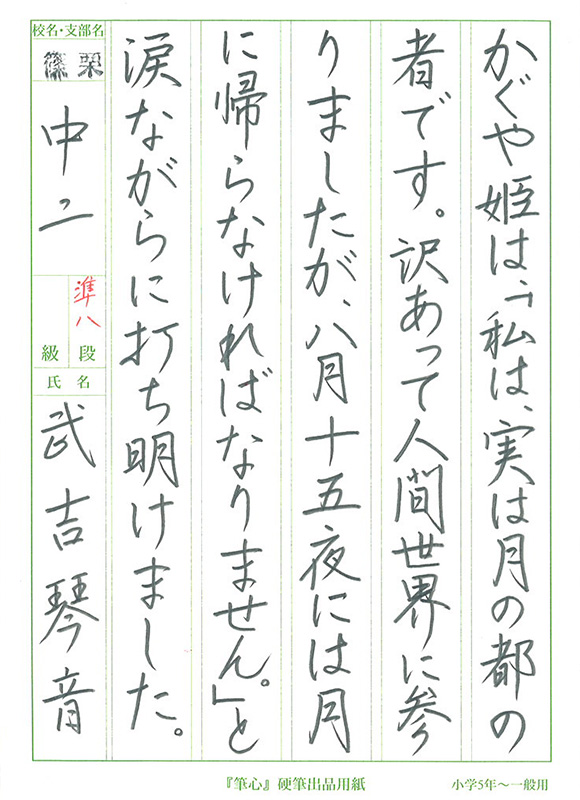 かぐや姫は、「私は、実は月の都の
者です。訳あって人間世界に参
りましたが、八月十五夜には月
に帰らなければなりません。」と
涙ながらに打ち明けました。
校名・支部名
篠栗
中二
準八
段
級
氏名
武吉琴音
『筆心』硬筆出品用紙
小学5年〜一般用